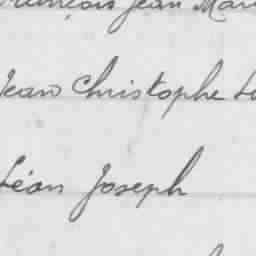 François Jean Mari
Jean Christophe
Léon Joseph